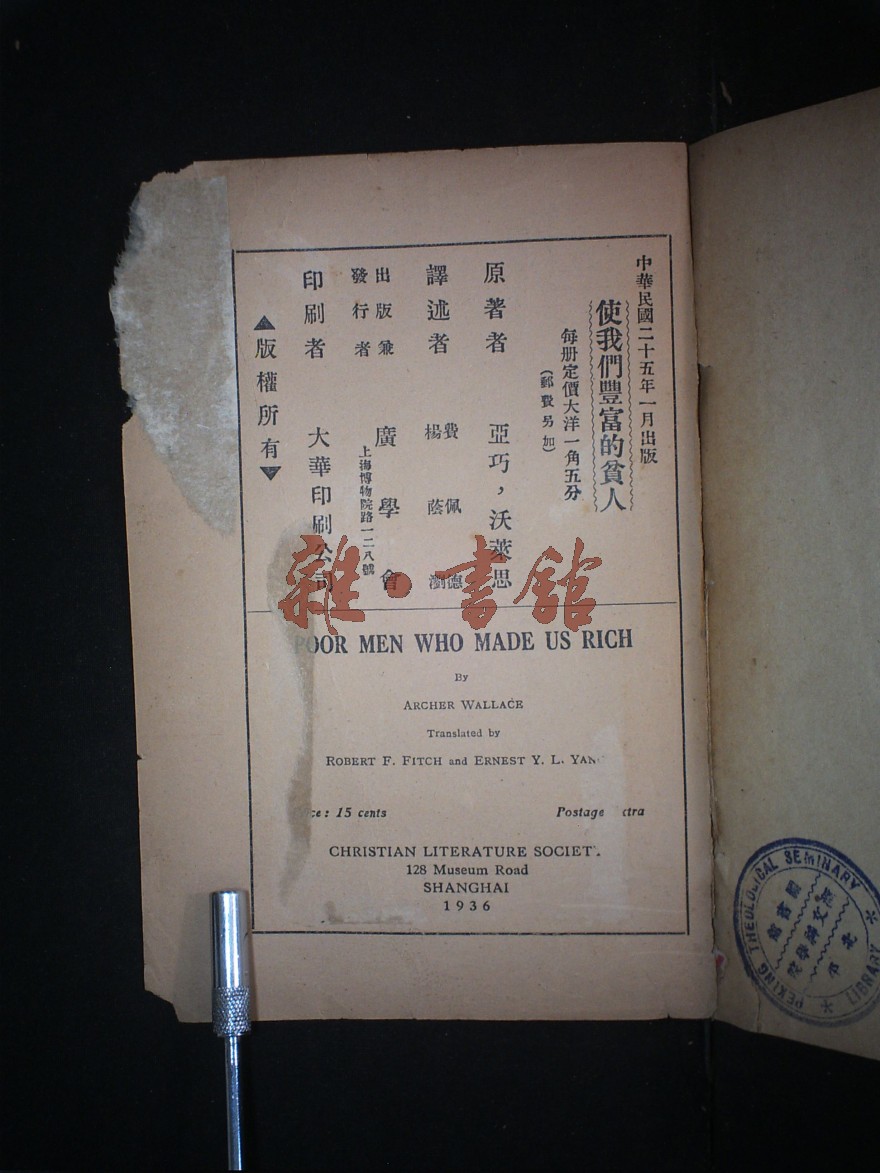 中華民國二十五年一月出版
使我們豐富的貧人
每册定價大洋一角五分
(郵費另加)
原著者 亞巧，沃萊思
譯述者 費佩德
楊蔭瀏
出版兼
發行者 廣學會
上海博物院路一二八號
印刷者 大華印刷公司
▲版權所有▼
雜·書館
POOR MEN WHO MADE US RICH
By
ARCHER WALLACE
Translated by
ROBERT F. FITCH and ERNEST Y. L. YAN
: 15 cents Postage
CHRISTIAN LITERATURE SOCIET
128 Museum Road
SHANGHAI
1936
PEKING THEOLOGICAL SEMINARY
LIBRARY